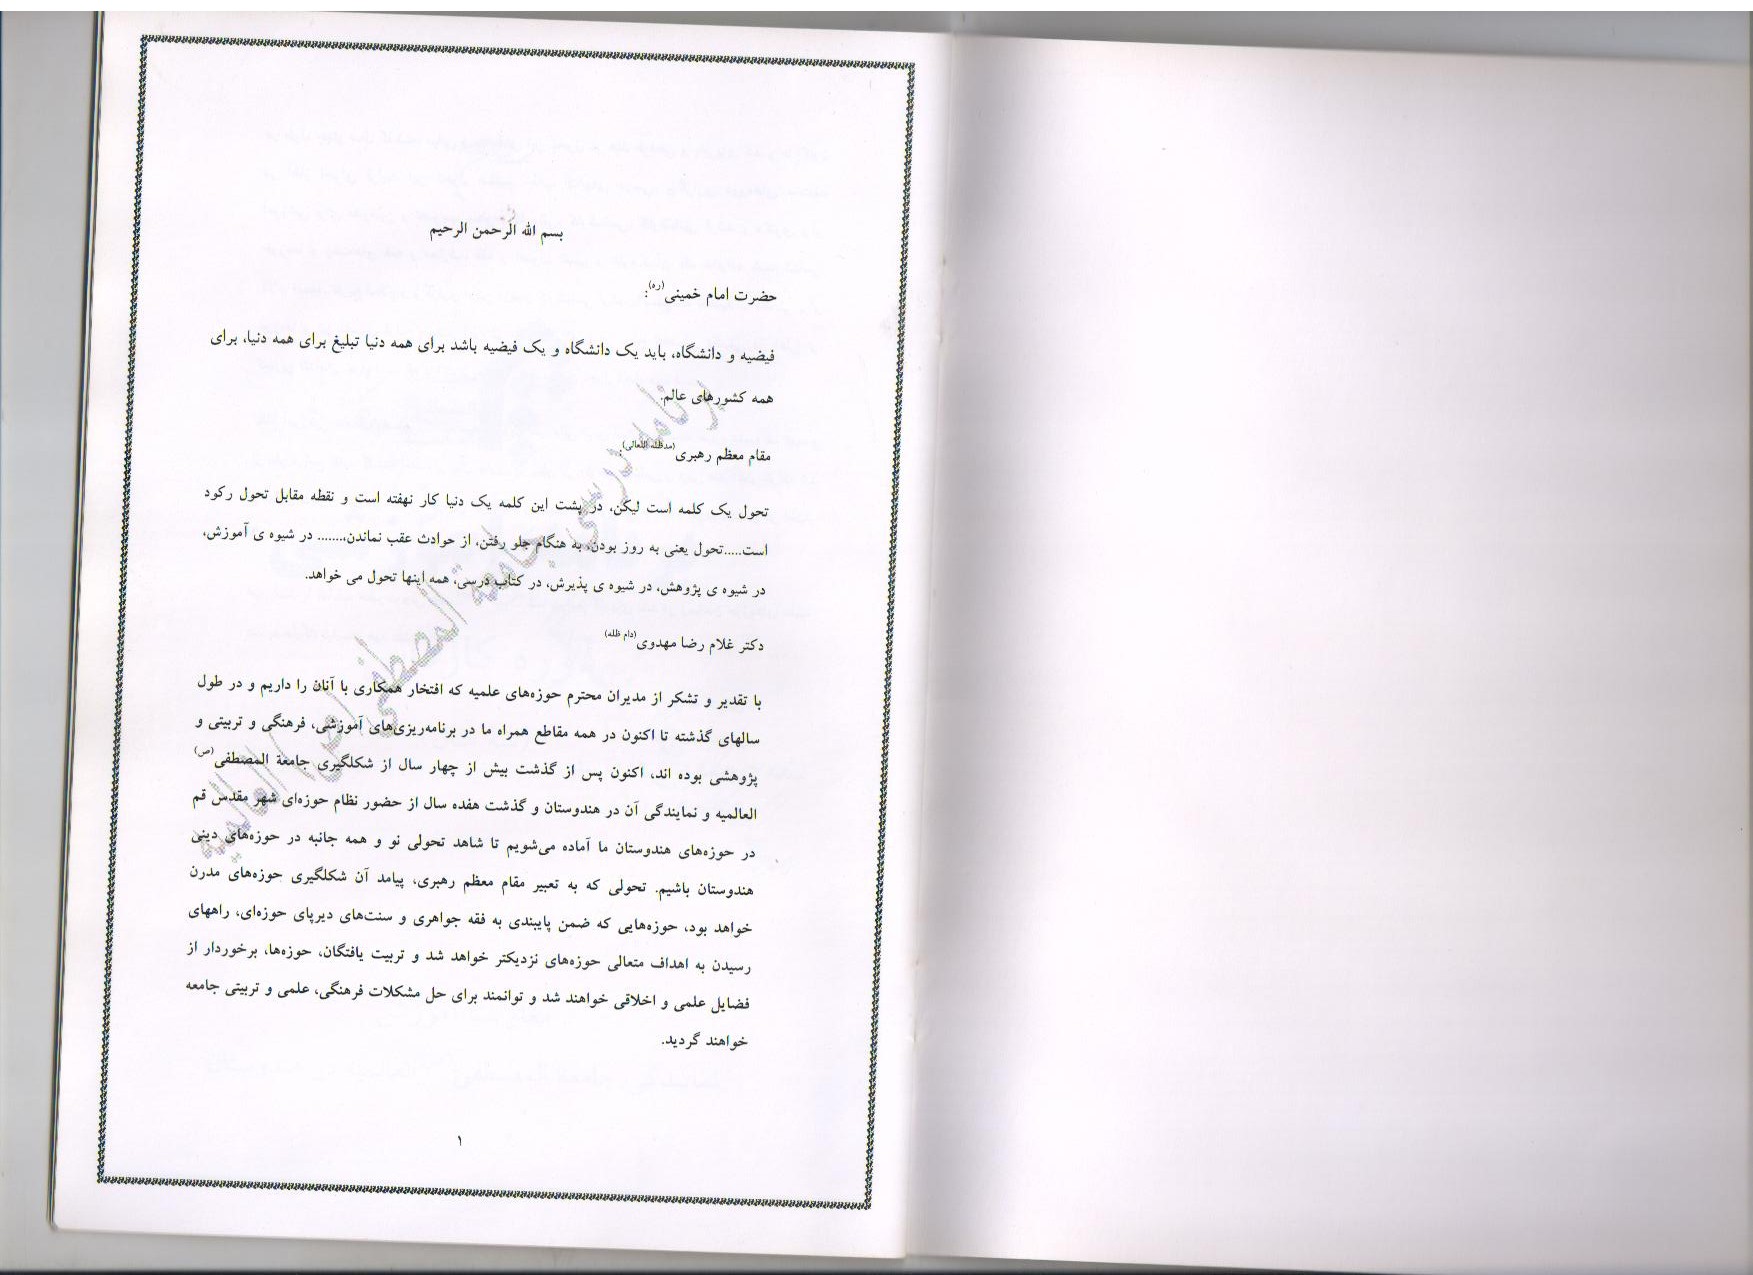 بسم الله الرحمن الرحیم
حضرت امام خمینی(ره):
فیضیه و دانشگاه، باید یک دانشگاه و یک فیضیه باشد برای همه دنیا تبلیغ برای همه دنیا، برای
همه کشورهای عالم.
مقام معظم رهبری(مدظله اللعالی):
تحول یک کلمه است لیکن، در پشت این کلمه یک دنیا کار نهفته است و نقطه مقابل تحول رکود
است.....تحول یعنی به روز بودن، به هنگام جلو رفتن، از حوادث عقب نماندن،....... در شیوه ی آموزش،
در شیوه ی پژوهش، در شیوه ی پذیرش، در کتاب درسی، همه اینها تحول می خواهد.
دکتر غلام رضا مهدوی(دام ظله)
با تقدیر و تشکر از مدیران محترم حوزه‌های علمیه که افتخار همکاری با آنان را داریم و در طول
سالهای گذشته تا اکنون در همه مقاطع همراه ما در برنامه‌ریزی‌های آموزشی، فرهنگی و تربیتی و
پژوهشی بوده اند، اکنون پس از گذشت بیش از چهار سال از شکلگیری جامعة المصطفی(ص)
العالمیه و نمایندگی آن در هندوستان و گذشت هفده سال از حضور نظام حوزه‌ای شهر مقدس قم
در حوزه‌های هندوستان ما آماده می‌شویم تا شاهد تحولی نو و همه جانبه در حوزه‌های دینی
هندوستان باشیم. تحولی که به تعبیر مقام معظم رهبری، پیامد آن شکلگیری حوزه‌های مدرن
خواهد بود، حوزه‌هایی که ضمن پایبندی به فقه جواهری و سنت‌های دیرپای حوزه‌ای، راههای
رسیدن به اهداف متعالی حوزه‌های نزدیکتر خواهد شد و تربیت یافتگان، حوزه‌ها، برخوردار از
فضایل علمی و اخلاقی خواهند شد و توانمند برای حل مشکلات فرهنگی، علمی و تربیتی جامعه
خواهند گردید.
برنامه درسی جامعة المصطفی (ص) العالمیه
۱